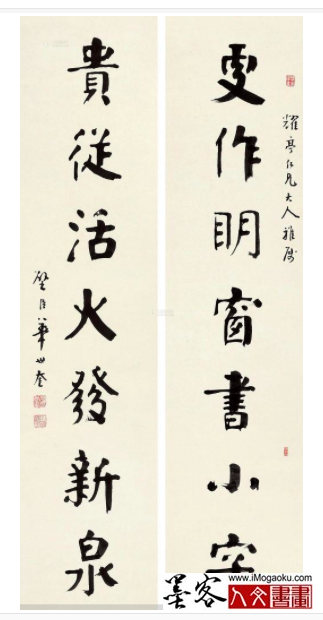 耀亭仁兄大人雅屬
更作眀窗書小字
貴從活火發新泉
璧臣華世奎
墨客
www.iMogaoku.com
人文書畫